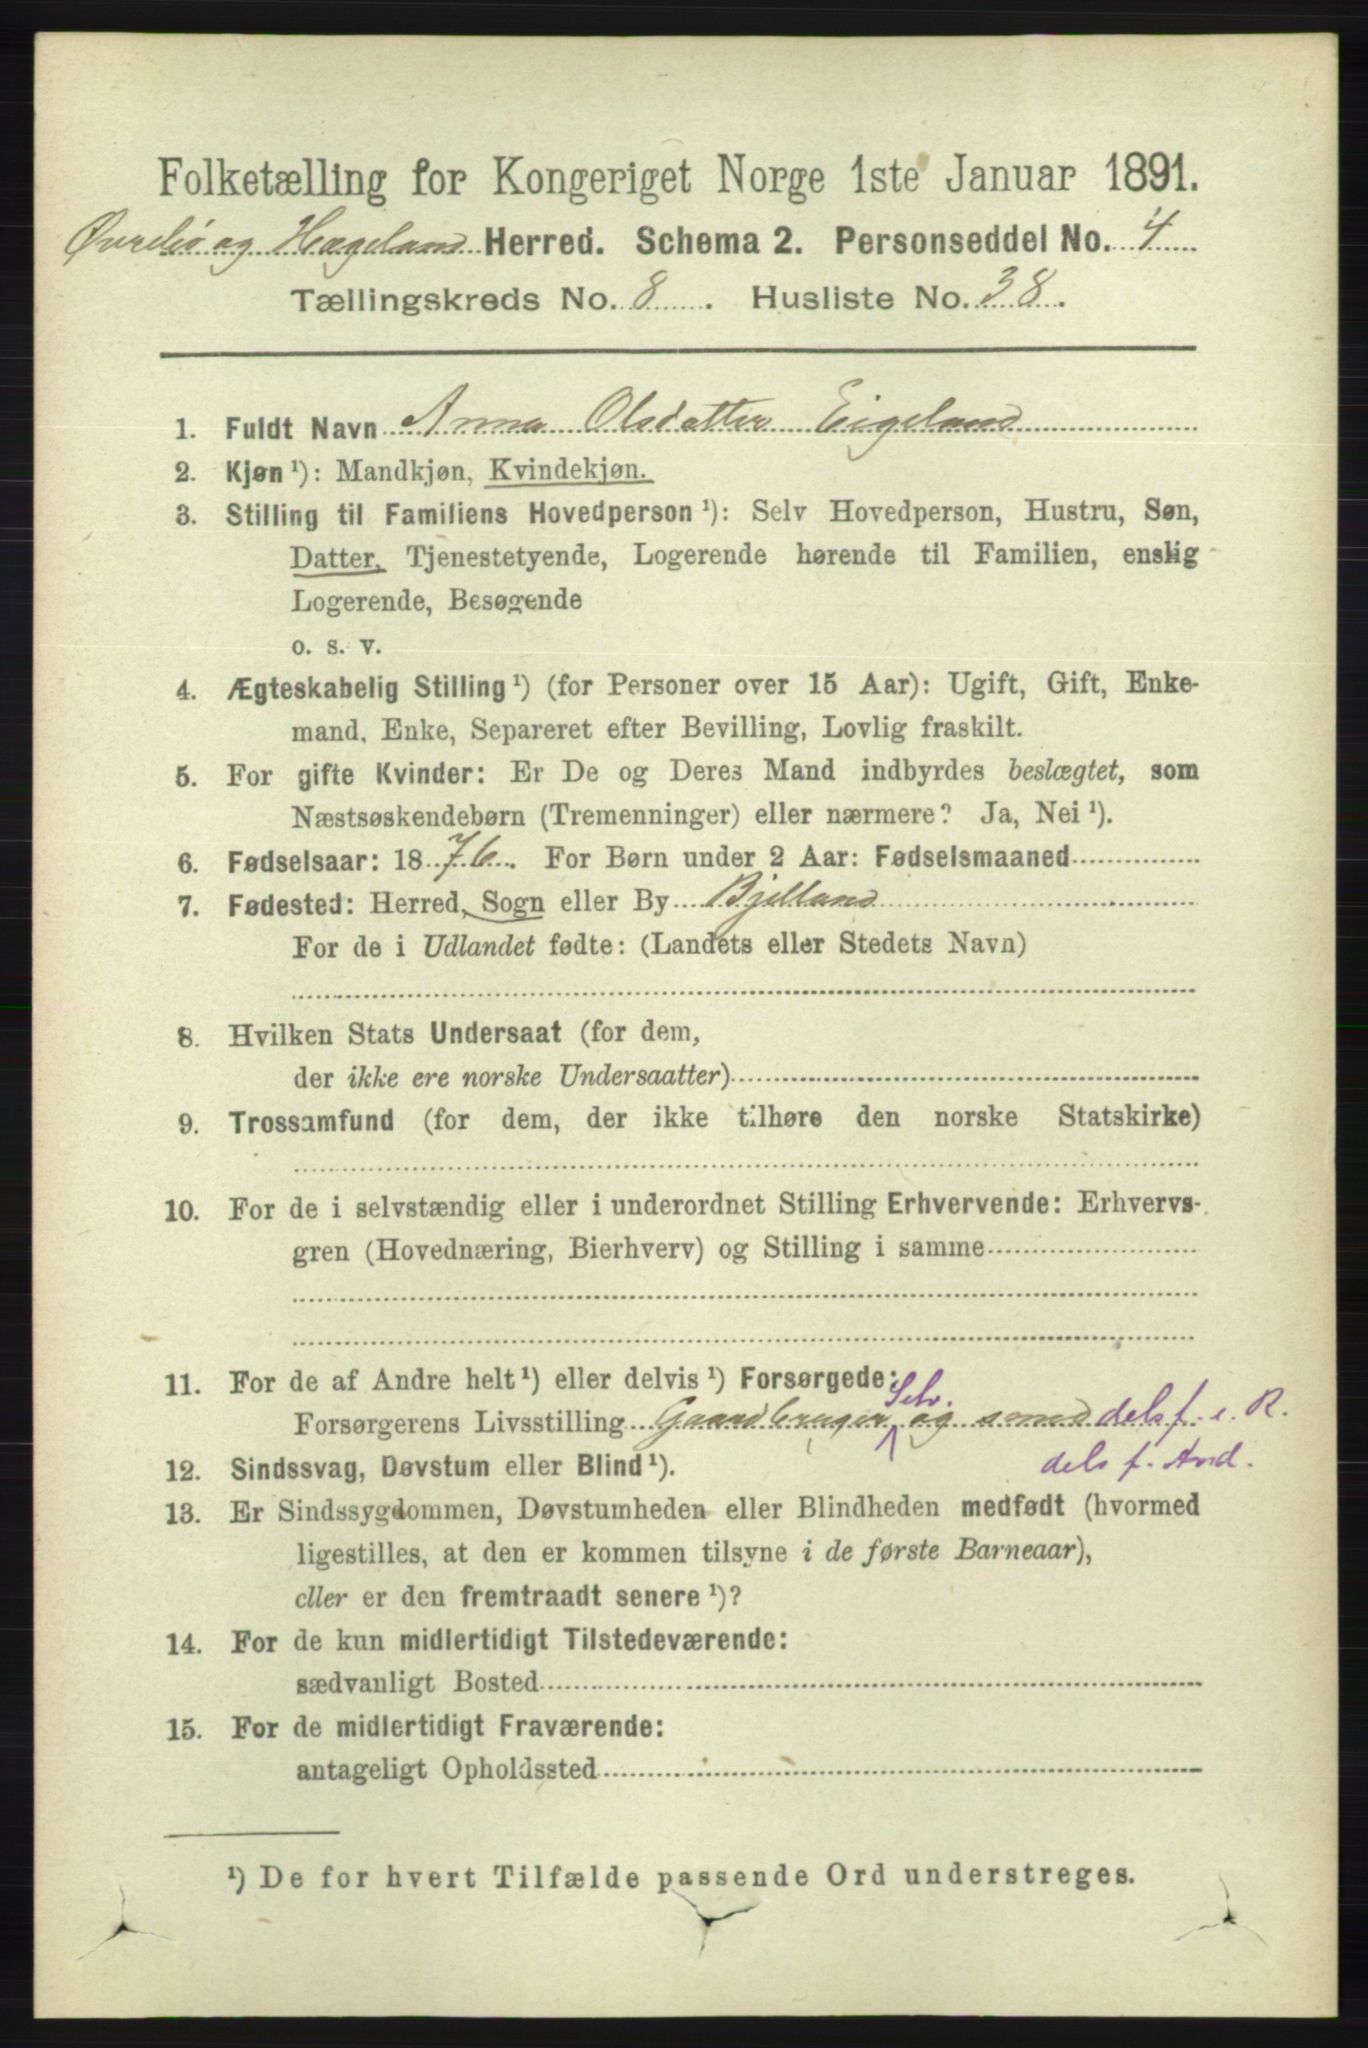 Folketælling for Kongeriget Norge 1ste Januar 1891.
Øvrebø og Hægeland Herred. Schema 2. Personseddel No. 4
Tællingskreds No. 8. Husliste No. 38.
1. Fuldt Navn Anna Olsdatter Eigeland
2. Kjøn ¹): Mandkjøn, Kvindekjøn.
3. Stilling til Familiens Hovedperson ¹): Selv Hovedperson, Hustru, Søn,
Datter, Tjenestetyende, Logerende hørende til Familien, enslig
Logerende, Besøgende
o. s. v.
4. Ægteskabelig Stilling ¹) (for Personer over 15 Aar): Ugift, Gift, Enke-
mand, Enke, Separeret efter Bevilling, Lovlig fraskilt.
5. For gifte Kvinder: Er De og Deres Mand indbyrdes beslægtet, som
Næstsøskendebørn (Tremenninger) eller nærmere? Ja, Nei ¹).
6. Fødselsaar: 1876. For Børn under 2 Aar: Fødselsmaaned
7. Fødested: Herred, Sogn eller By Bjelland
For de i Udlandet fødte: (Landets eller Stedets Navn)
8. Hvilken Stats Undersaat (for dem,
der ikke ere norske Undersaatter)
9. Trossamfund (for dem, der ikke tilhøre den norske Statskirke)
10. For de i selvstændig eller i underordnet Stilling Erhvervende: Erhvervs-
gren (Hovednæring, Bierhverv) og Stilling i samme
11. For de af Andre helt ¹) eller delvis ¹) Forsørgede:
Selv.
Forsørgerens Livsstilling Gaardbruger og smed dels f. e. R.
12. Sindssvag, Døvstum eller Blind ¹). dels f. And.
13. Er Sindssygdommen, Døvstumheden eller Blindheden medfødt (hvormed
ligestilles, at den er kommen tilsyne i de første Barneaar),
eller er den fremtraadt senere ¹)?
14. For de kun midlertidigt Tilstedeværende:
sædvanligt Bosted
15. For de midlertidigt Fraværende:
antageligt Opholdssted
¹) De for hvert Tilfælde passende Ord understreges.